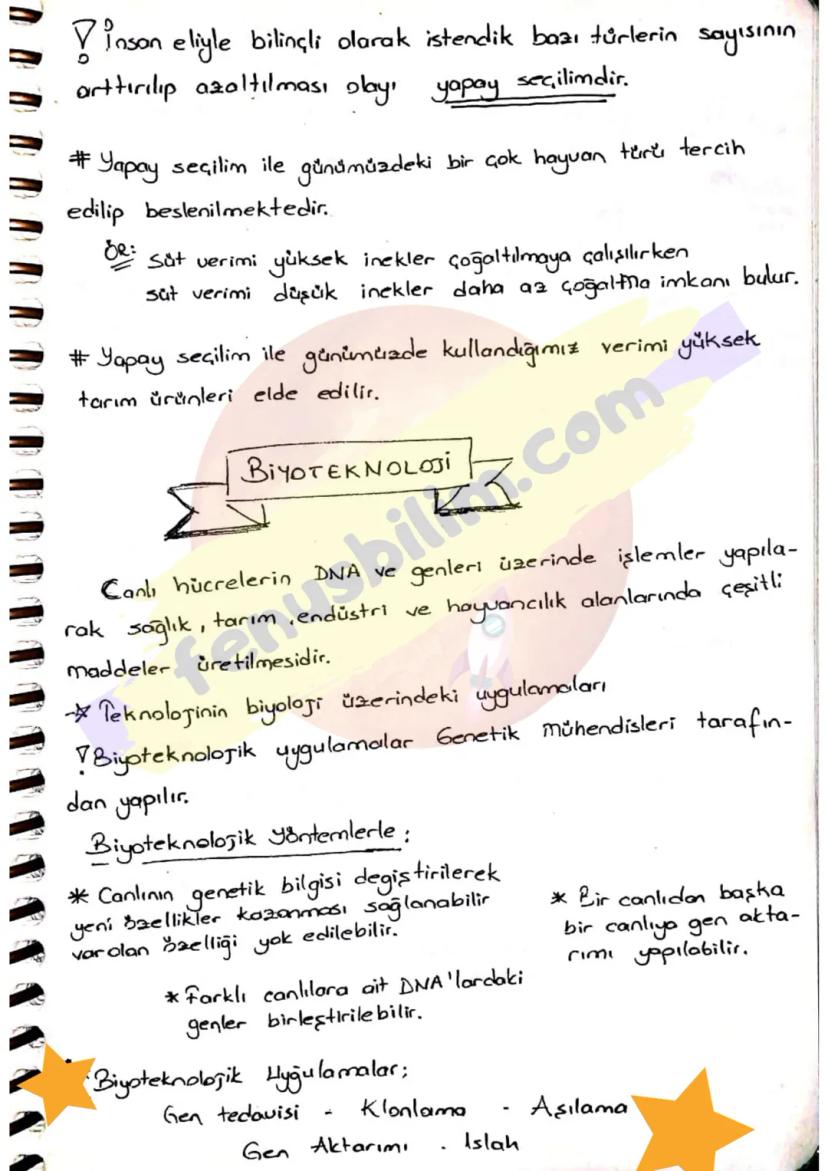 ! İnsan eliyle bilinçli olarak istendik bazı türlerin sayısının
arttırılıp azaltılması olayı yapay seçilimdir.
# Yapay seçilim ile günümüzdeki bir çok hayvan türü tercih
edilip beslenilmektedir.
ÖR: Süt verimi yüksek inekler çoğaltılmaya çalışılırken
süt verimi düşük inekler daha az çoğaltma imkanı bulur.
# Yapay seçilim ile günümüzde kullandığımız verimi yüksek
tarım ürünleri elde edilir.
BİYOTEKNOLOJİ
fenusbilim.com
Canlı hücrelerin DNA ve genleri üzerinde işlemler yapıla-
rak sağlık, tarım, endüstri ve hayvancılık alanlarında çeşitli
maddeler üretilmesidir.
☆ Teknolojinin biyoloji üzerindeki uygulamaları
! Biyoteknolojik uygulamalar Genetik mühendisleri tarafın-
dan yapılır.
Biyoteknolojik Yöntemlerle :
* Canlının genetik bilgisi degiştirilerek
yeni özellikler kazanması sağlanabilir
var olan özelliği yok edilebilir.
* Bir canlıdan başka
bir canlıya gen akta-
rımı yapılabilir.
* Farklı canlılara ait DNA'lardaki
genler birleştirilebilir.
Biyoteknolojik Uyğulamalar;
Gen tedavisi - Klonlama - Aşılama
Gen Aktarımı . Islah